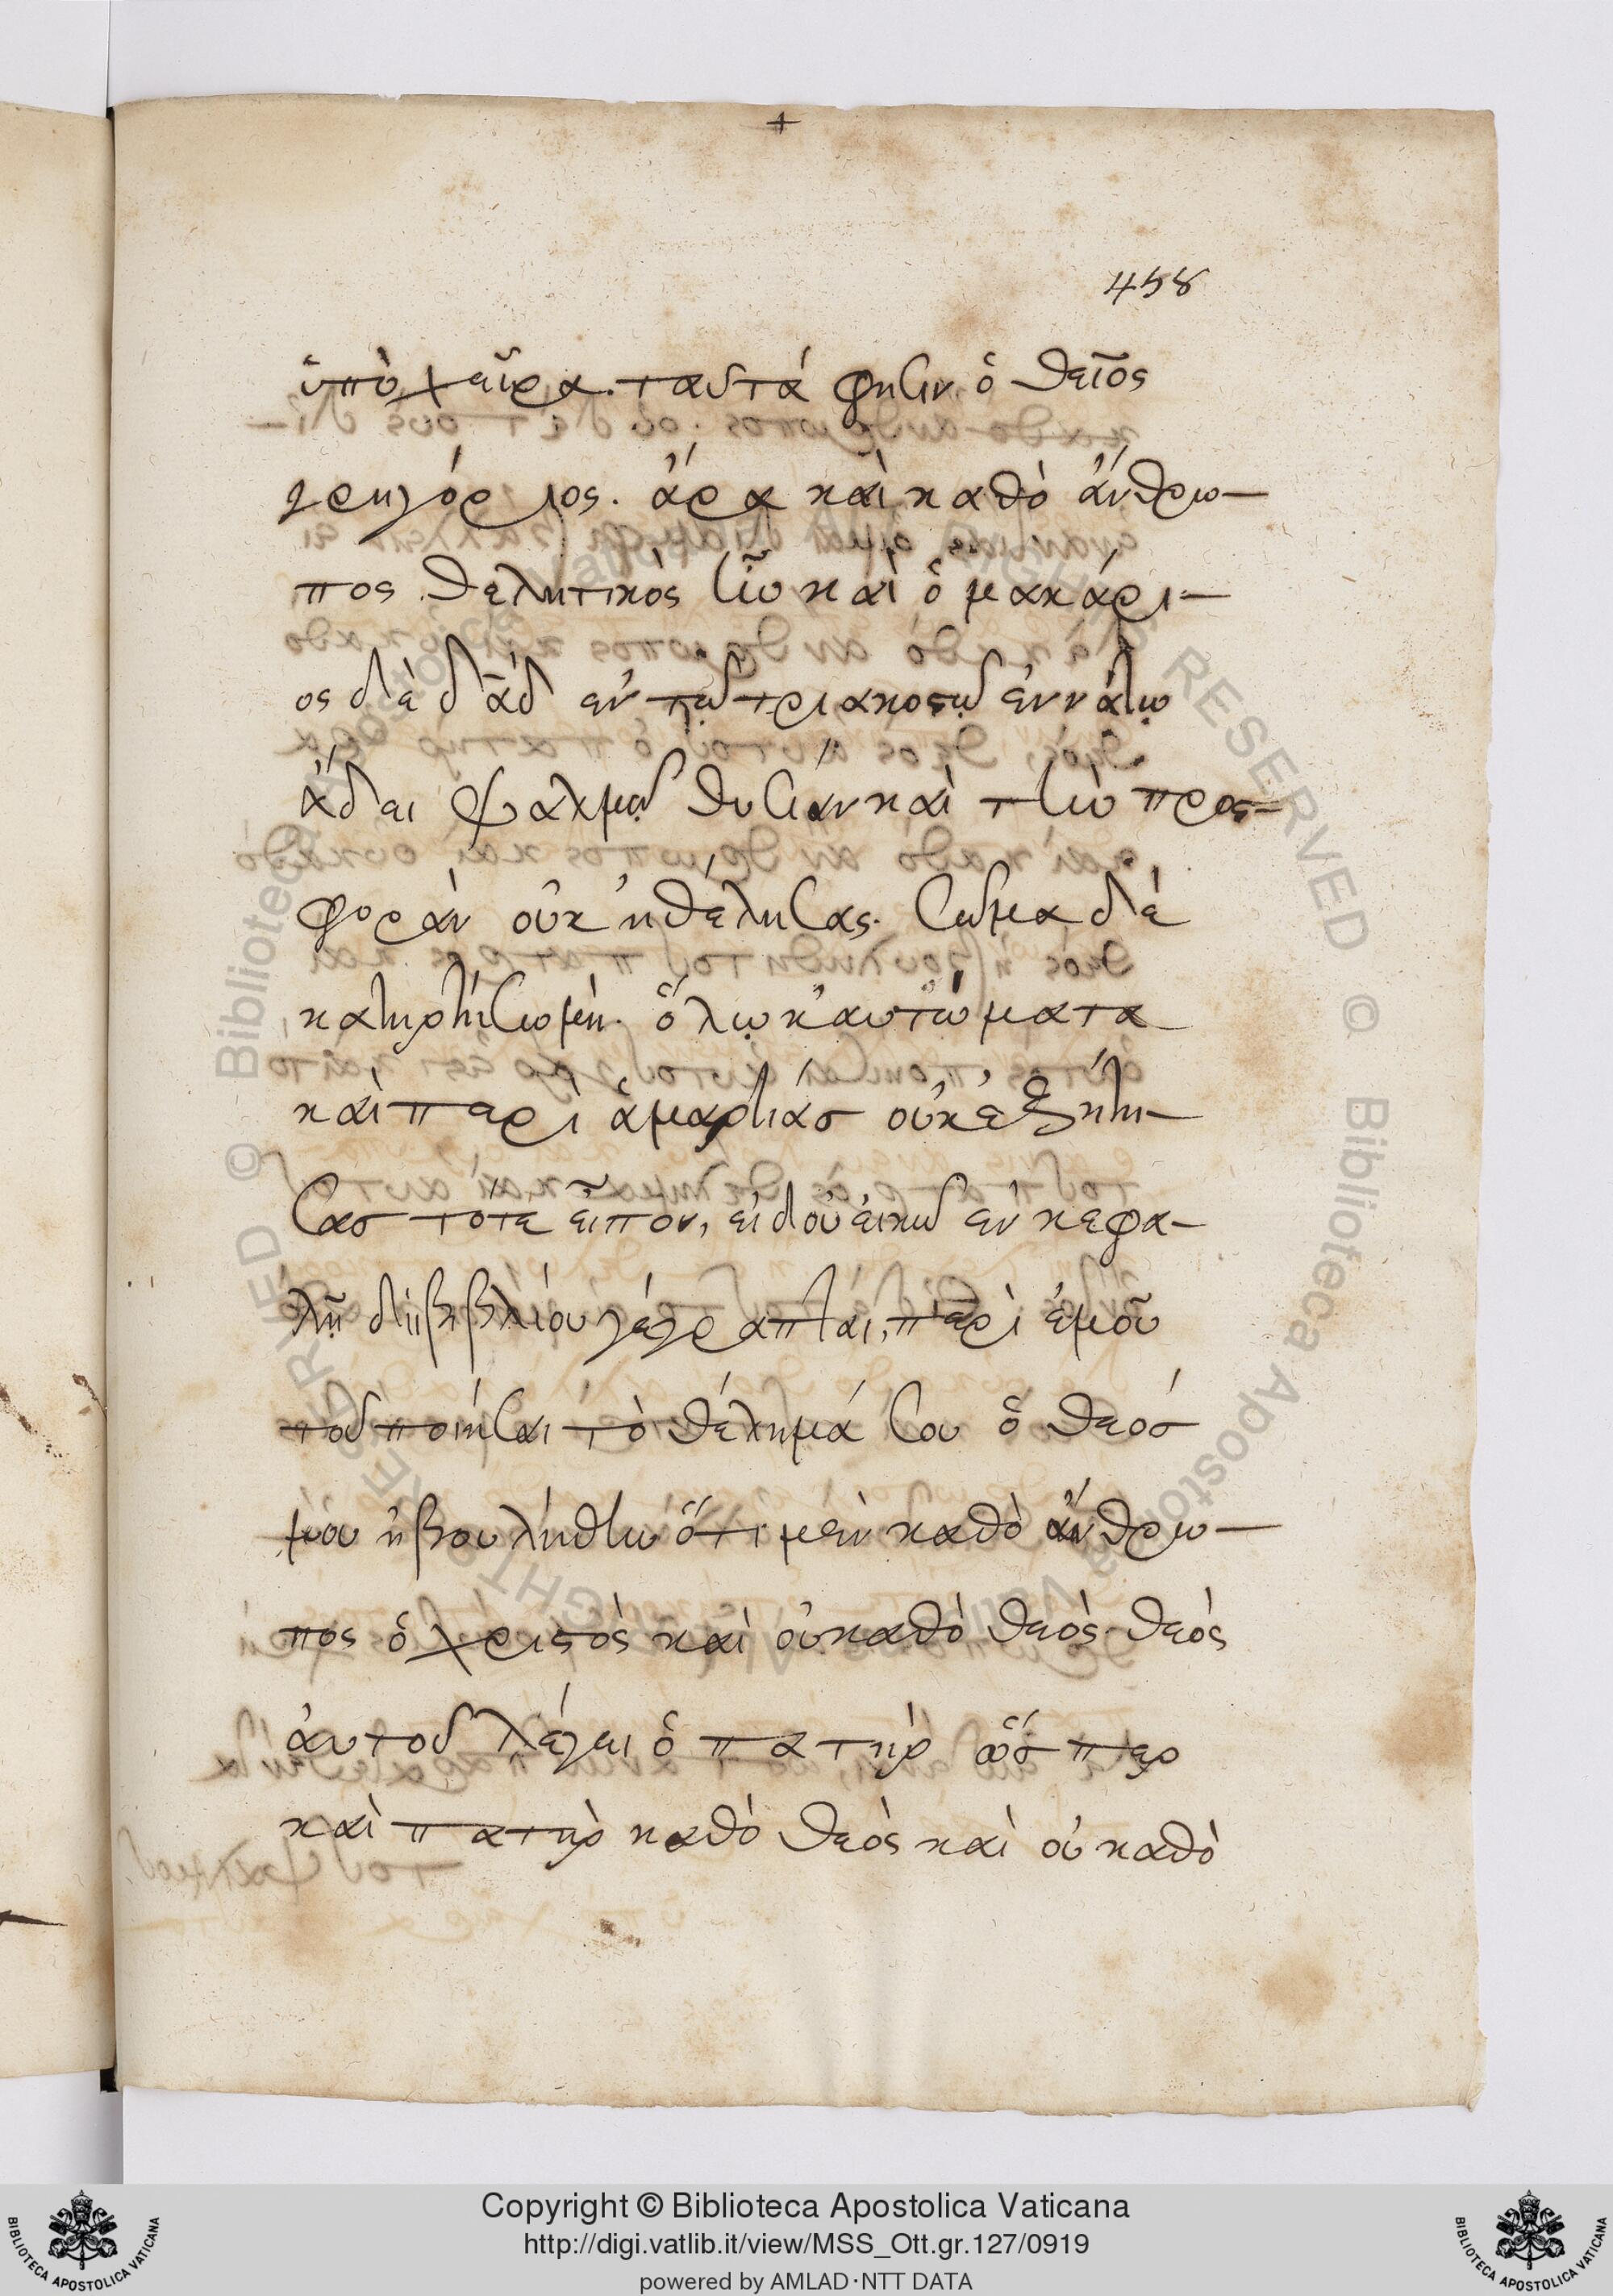 +
458
ὑπὸ χεῖρα. ταυτά φησιν ὁ θεῖος
γρηγόριος. ἄρα καὶ καθὸ ἄνθρω—
πος θελητικὸς ἦν καὶ ὁ μακάρι—
ος δὲ δᾱδ ἐν τῷ τριακοστῷ ἐννάτῳ
ἄδει ψαλμῷ θυσίαν καὶ τὴν προς—
φορὰν οὐκ ἠθέλησας. σῶμα δὲ
κατηρτήσω μὴ. ὅλωκαυτώματα
καὶ περὶ ἁμαρτίασ οὐκ ἐζήτη—
σασ τότε εἶπον, εἰδοὺ εἰκῶ ἐν κεφα—
λῇ διβηβλίου γέγραπται, περὶ ἐμοῦ
τοῦ ποιήσαι τὸ θέλημά σου ὁ θεόσ
μου ἠβουλήθην ὅτι μὲν καθὸ ἄνθρω—
πος ὁ χριστὸς καὶ οὐ καθὸ θεὸς. θεὸς
ἀυτοῦ λέγει ὁ πατὴρ ὥσπερ
καὶ πατὴρ καθὸ θεὸς καὶ οὐ καθὸ
Copyright © Biblioteca Apostolica Vaticana
http://digi.vatlib.it/view/MSS_Ott.gr.127/0919
powered by AMLAD·NTT DATA
BIBLIOTECA APOSTOLICA VATICANA
BIBLIOTECA APOSTOLICA VATICANA